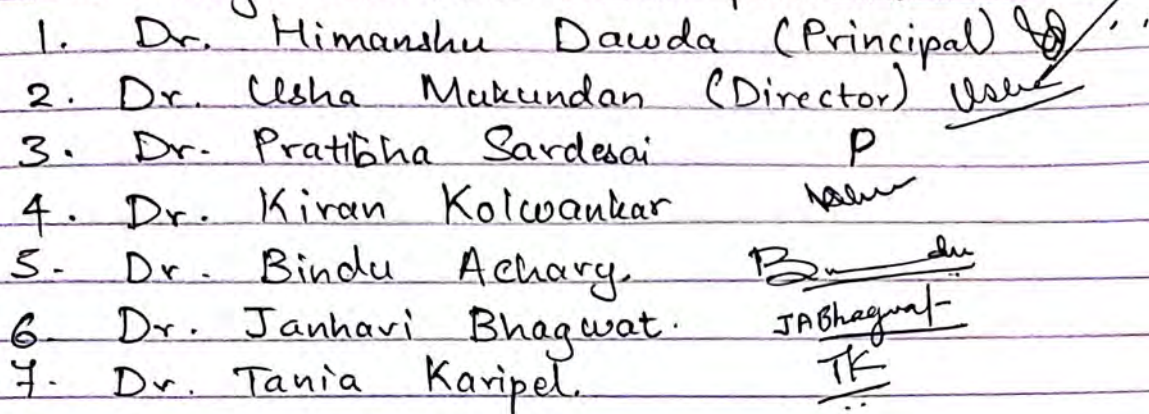 1. Dr. Himanshu Dawda (Principal)
2. Dr. Usha Mukundan (Director) Usha
3. Dr. Pratibha Sardesai P
4. Dr. Kiran Kolwankar
5- Dr. Bindu Achary. B du
6- Dr. Janhavi Bhagwat. JABhagwat
7- Dr. Tania Karipel. TK